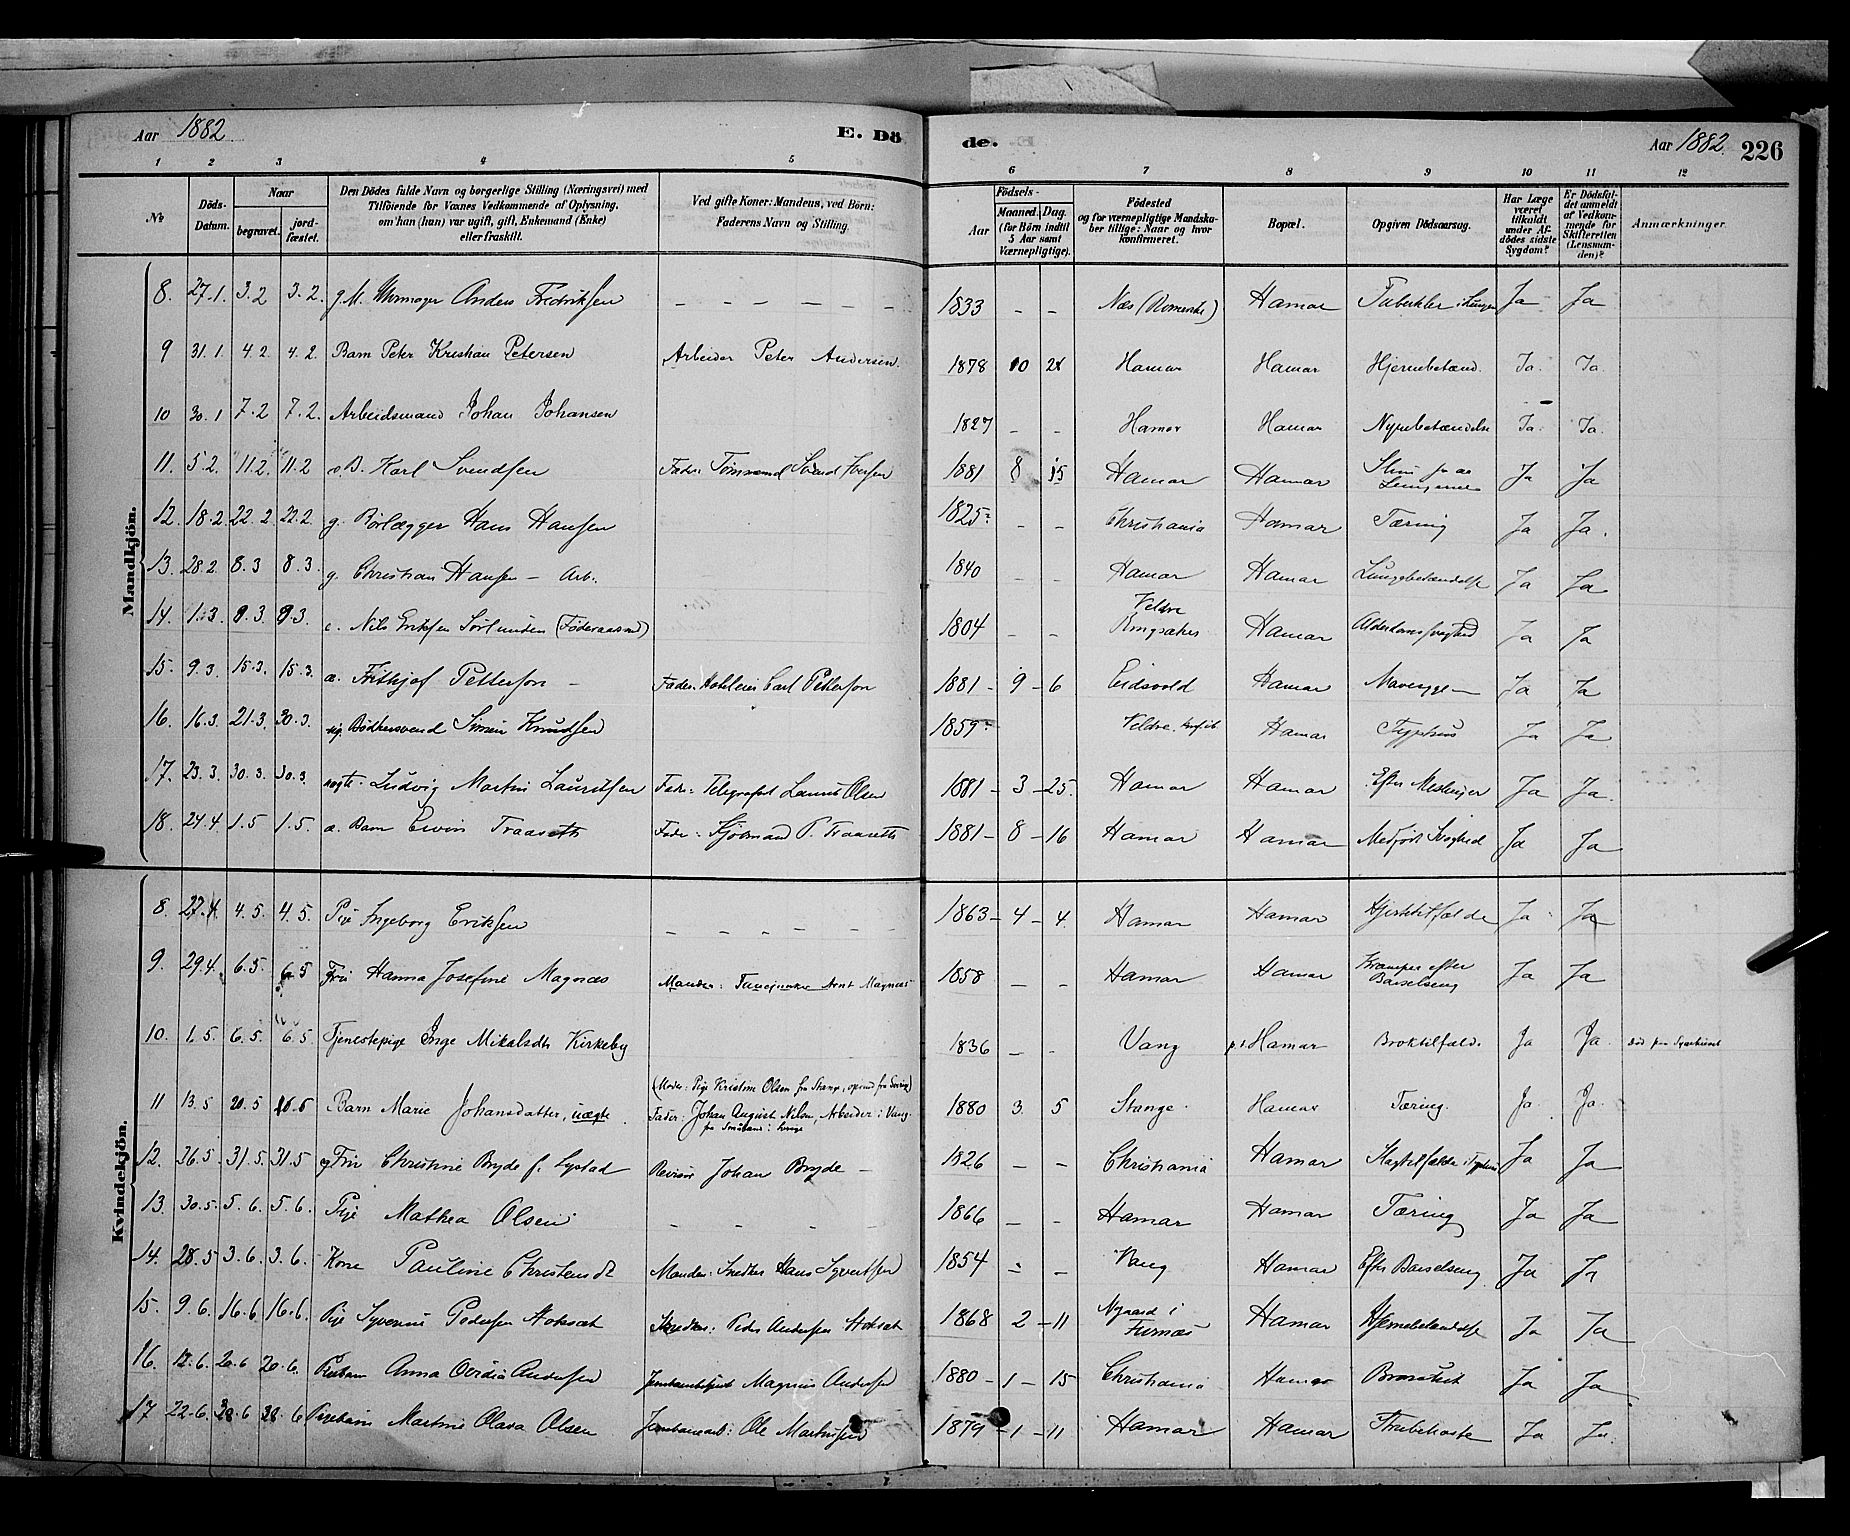 Aar 1882. E. Dö
de. Aar 1882. 226
1 2 3 4 5
6 7 8 9 10 11 12
No
Döds-Datum.
Naar
begravet.
jord-fæstet.
Den Dödes fulde Navn og borgerlige Stilling (Næringsvei) med
Tilföiende for Voxnes Vedkommende af Oplysning,
om han (hun) var ugift, gift, Enkemand (Enke)
eller fraskilt.
Ved gifte Koner: Mandens, ved Börn:
Faderens Navn og Stilling.
Födsels-
Aar
Maaned. Dag.
(for Börn indtil
5 Aar samt
Værnepligtige).
Födested
og for værnepligtige Mandska-
ber tillige: Naar og hvor
konfirmeret.
Bopæl.
Opgiven Dödsaarsag.
Har Læge
været
tilkaldt
under Af-
dödes sidste
Sygdom?
Er Dödsfal-
det anmeldt
af Vedkom-
mende for
Skifteretten
(Lensman-
den)?
Anmærkninger.
Mandkjön.
8. 27.1. 3.2 3.2. g. M. Anders Fredriksen – – – – – 1833 – – Næs (Romerike) Hamar Tuberkler i Lungen Ja Ja
9 31.1. 4.2. 4.2. Barn Peter Kristian Petersen Arbeider Peter Andersen. 1878 10 24 Hamar Hamar Hjernebetænd. Ja. Ja.
10 30.1 7.2 7.2. Arbeidsmand Johan Johansen 1827 – – Hamar Hamar Nyrebetændelse Ja. Ja.
11. 5.2. 11.2. 11.2 æ. B. Karl Svendsen Fader: Tømmermd Svend Iversen 1881 8 15 Hamar Hamar Slim paa Lungerne Ja Ja
12. 18.2 22.2 22.2. g. Rørlægger Hans Hansen 1825 – – Christiania Hamar Tæring Ja Ja.
13. 28.2. 8.3 8.3. g. Christian Hansen – Arb. 1840 – – Hamar Hamar Lungebetændelse Ja Ja
14. 1.3. 8.3. 8.3. e. Nils Eriksen Sørlunden (Føderaadsmd) 1804 – – Veldre Ringsaker Hamar Alderdomssvaghed Ja Ja
15. 9.3. 15.3. 15.3. æ. Frithjof Petterson – Fader: Hoteleier Carl Petterson 1881 – 9 – 6 Eidsvold Hamar Mavesyge – Ja Ja
16. 16.3. 21.3. 30.3. ug. Bødkersvend Simen Knudsen 1859 Veldre, Hamar Typhus Ja Ja
17. 23.3. 30.3. 30.3 uægte Ludvig Martin Lauritsen Fader: Telegrafist Laurits Olsen 1881 – 3 – 25. Hamar Hamar Efter Meslinger Ja Ja.
18. 24.4. 1.5 1.5. æ. Barn Edvin Traaseth Fader: Kjøbmand P. Traaseth 1881 – 8 – 16 Hamar Hamar Medfødt Svaghed Ja Ja
Kvindekjön.
8. 27.4. 4.5. 4.5. Pige Ingeborg Eriksen – – – – – – 1863 – 4 – 4. Hamar Hamar Hjertetilfælde Ja Ja
9. 29.4. 6.5. 6.5 Fru Hanna Josefine Magnæs Manden: Arnt Magnæs 1858 – – Hamar Hamar Kramper efter Barselseng Ja Ja
10. 1.5. 6.5. 6.5 Tjenestepige Inge Mikalsdtr Kirkeby 1836 – – Vang p.t. Hamar Broktilfælde Ja Ja. død paa Sygehuset
11 13.5 20.5 16.5 Barn Marie Johansdatter, uægte (Moder: Pige Kristine Olsen fra Stange, opvoxd fra Sverige) Fader: Johan August Nilsen, Arbeider i Vang fra Småland i Sverige 1880 3. 5 Stange. Hamar Tæring. Ja Ja.
12. 26.5. 31.5. 31.5 g. Fru Christine Bryde f. Lystad Revisor Johan Bryde – 1826 – – Christiania Hamar Ja Ja
13. 30.5. 5.6. 5.6. Pige Mathea Olsen – – – – 1866 – – Hamar Hamar Tæring Ja Ja
14. 28.5 3.6. 3.6. Kone Pauline Christensdt Manden: Snedker Hans Syvertsen 1854 – – Vang Hamar Efter Barselseng Ja Ja
15. 9.6. 16.6. 16.6. Pige Syverine Pedersen Stoksæt Snedker: Peder Andersen Stoksæt 1868 2 – 11 Nygaard i Furnæs Hamar Hjernebetændelse Ja Ja
16. 12.6. 20.6 20.6. Pikebarn Anna Ovidia Andersen Magnus Andersen 1880 – 1 – 15 Christiania Hamar Ja Ja
17 22.6. 28.6 28.6 Pigebarn Martine Olava Olsen Jernbanearb: Ole Martinsen 1879 – 1 – 11 Hamar Hamar Strubehoste Ja Ja.